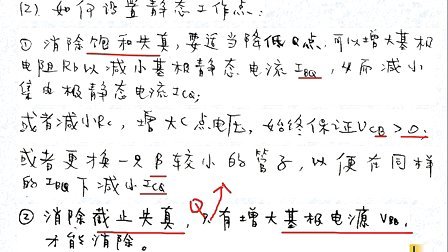 (2) 如何设置静态工作点:
① 消除饱和失真,要适当降低Q点.可以增大基极
电阻Rb以减小基极静态电流IBQ,从而减小
集电极静态电流ICQ;
或者减小Rc,增大C点电压,始终保证VCB>0.
或者更换一只β较小的管子,以便在同样
的IBQ下减小ICQ
Q
② 消除截止失真,只有增大基极电源VBB,
才能消除。